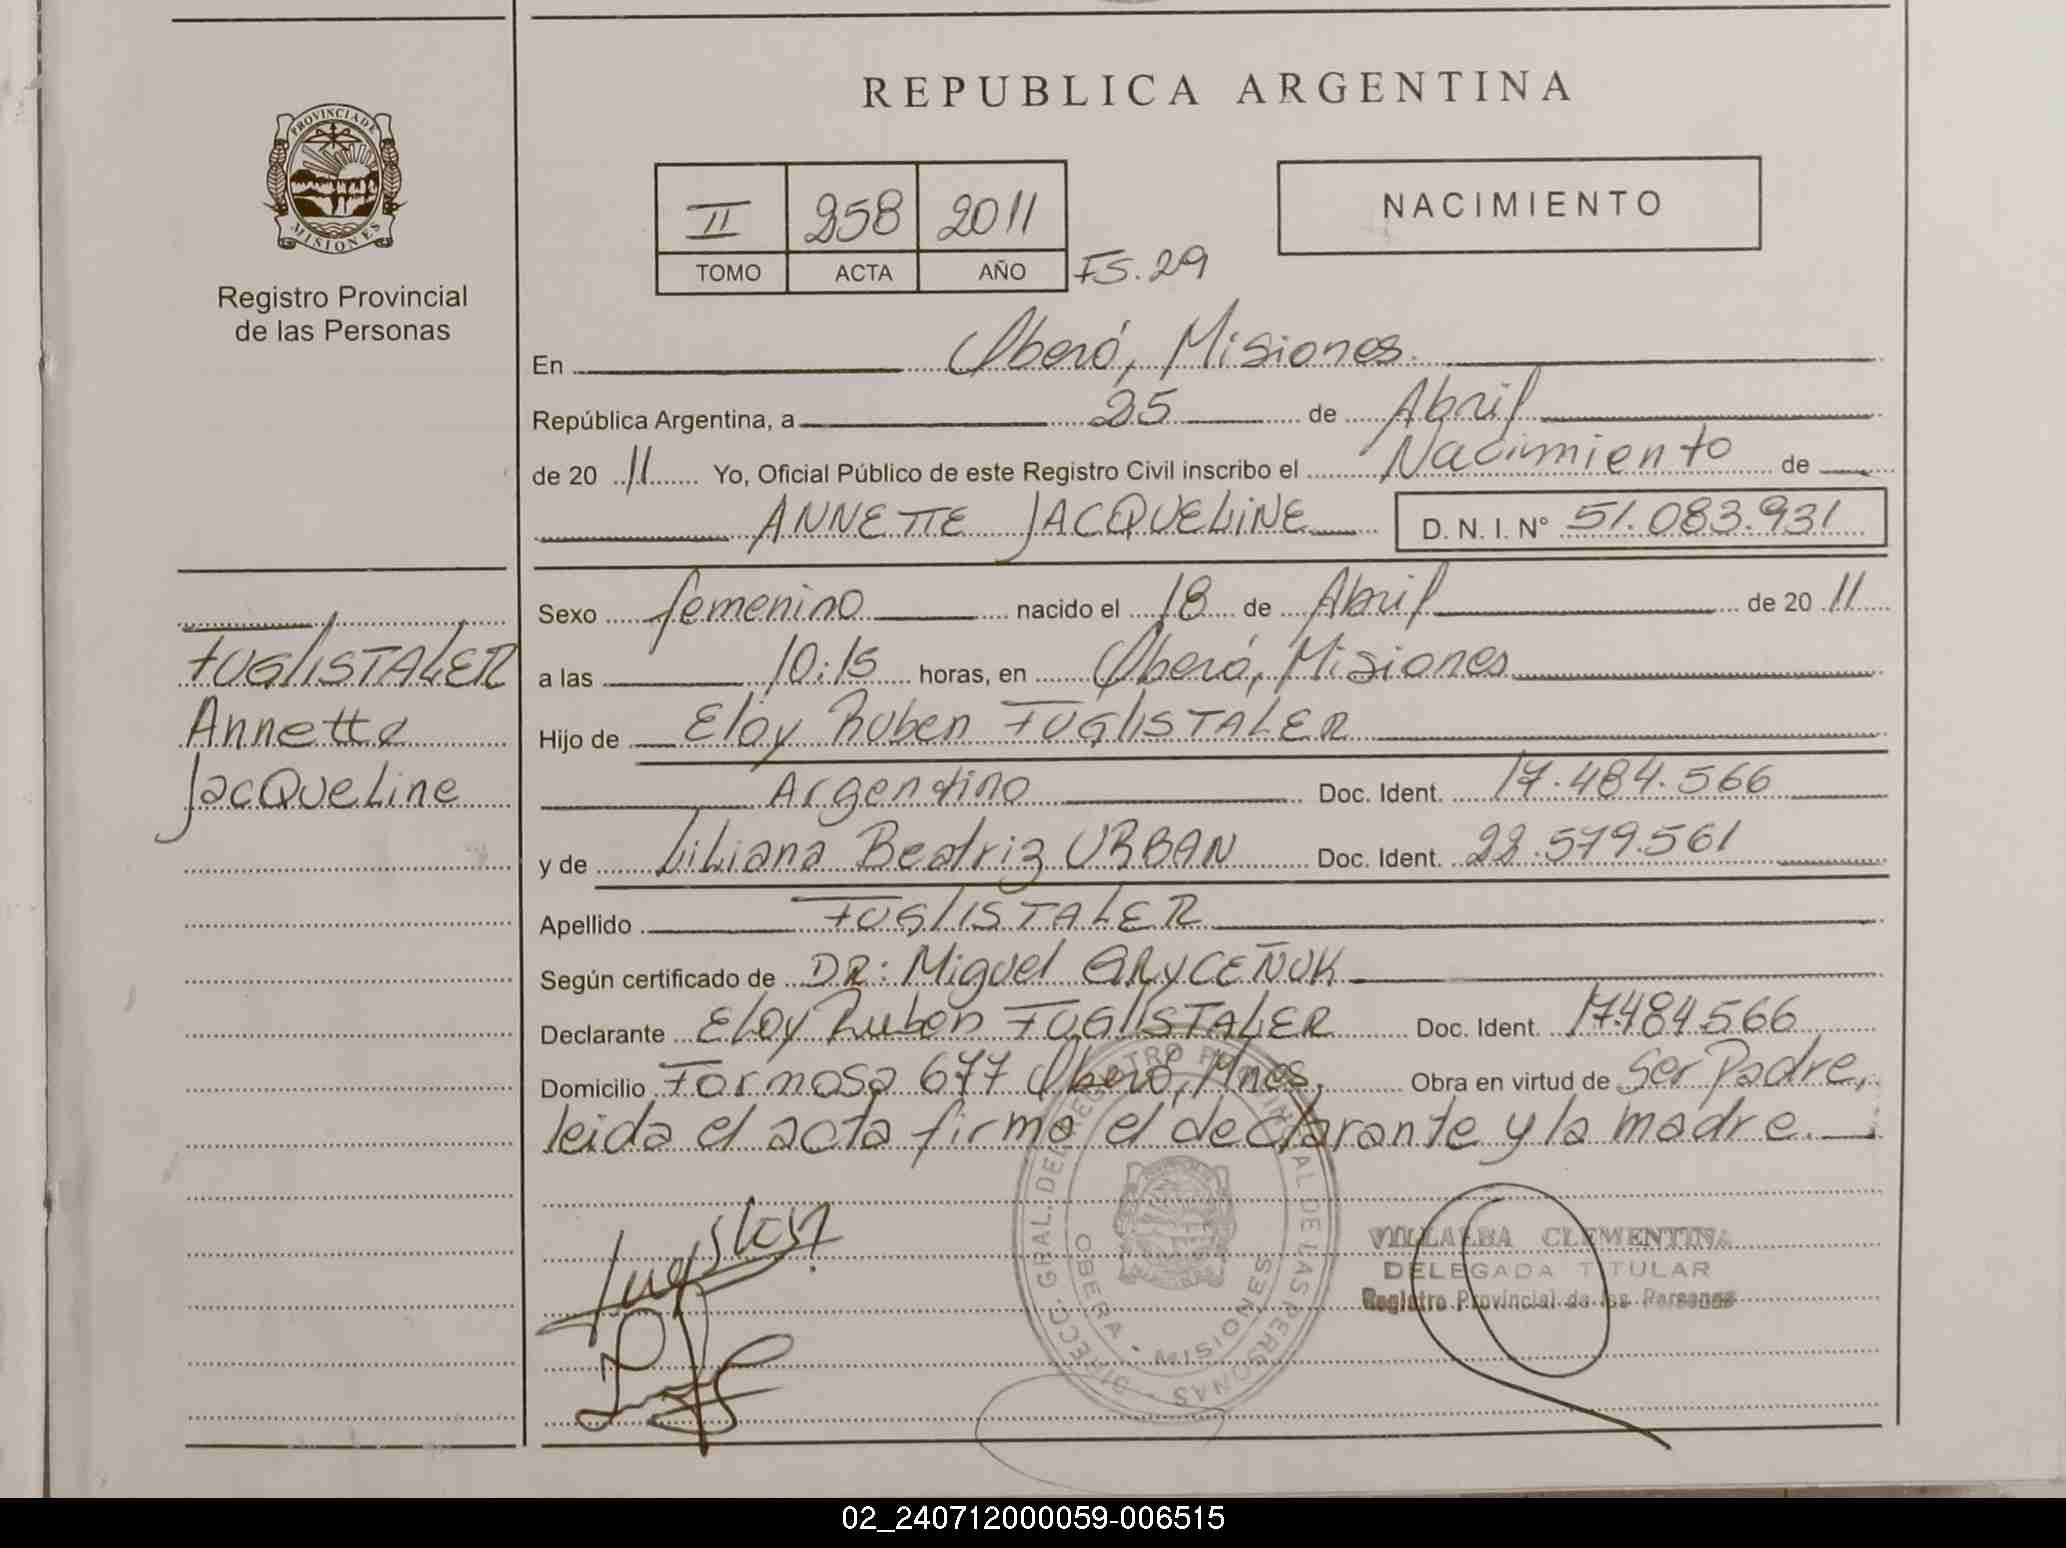 REPUBLICA ARGENTINA
PROVINCIA DE
MISIONES
Registro Provincial
de las Personas
II 258 2011
TOMO ACTA AÑO
FS. 29
NACIMIENTO
En Oberá, Misiones.
República Argentina, a 25 de Abril
de 20 11 Yo, Oficial Público de este Registro Civil inscribo el Nacimiento de
ANNETTE JACQUELINE D. N. I. Nº 51.083.931
Sexo femenino nacido el 18 de Abril de 20 11
FUGLISTALER
Annette
Jacqueline
a las 10:15 horas, en Oberá, Misiones
Hijo de Eloy Ruben FUGLISTALER
Argentino Doc. Ident. 17.484.566
y de Liliana Beatriz URBAN Doc. Ident. 22.579.561
Apellido FUGLISTALER
Según certificado de DR: Miguel GRYCEÑUK
Declarante Eloy Ruben FUGLISTALER Doc. Ident. 17.484.566
Domicilio Formosa 677 Oberá, Mnes. Obra en virtud de Ser Padre,
leida el acta firma el declarante y la madre.
DIRECC. GRAL. DEL REGISTRO PROVINCIAL DE LAS PERSONAS
OBERA - MISIONES
VILLALBA CLEMENTINA
DELEGADA TITULAR
Registro Provincial de las Personas
02_240712000059-006515